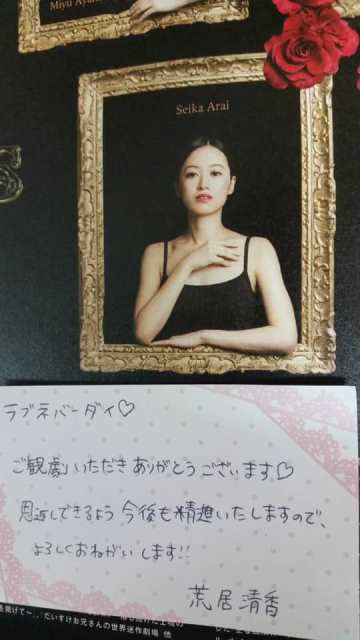 Miyu Aya
Seika Arai
ラブネバーダイ♡
ご観劇いただきありがとうございます♡
恩返しできるよう今後も精進いたしますので、
よろしくおねがいします!!
荒居清香
だいすけお兄さんの世界迷作劇場 他